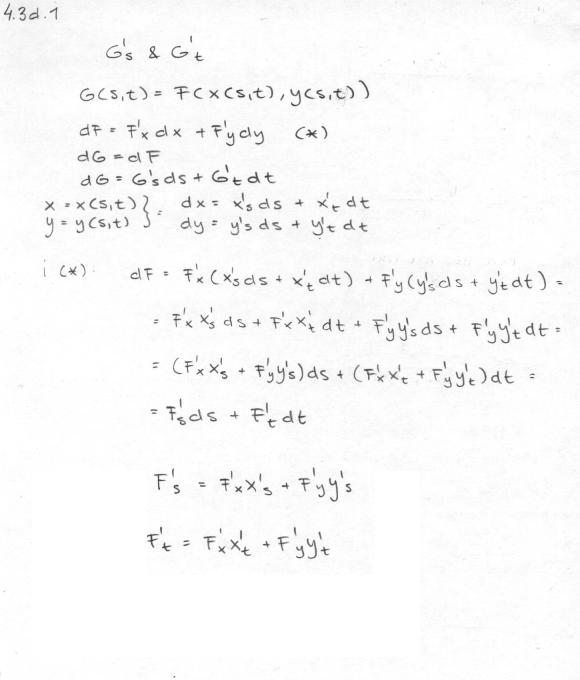 4.3d.1
G's & G't
G(s,t) = F(x(s,t), y(s,t))
dF = F'x dx + F'y dy (*)
dG = dF
dG = G's ds + G't dt
x = x(s,t) } : dx = x's ds + x't dt
y = y(s,t) } dy = y's ds + y't dt
i (*). dF = F'x (x's ds + x't dt) + F'y (y's ds + y't dt) =
= F'x x's ds + F'x x't dt + F'y y's ds + F'y y't dt =
= (F'x x's + F'y y's) ds + (F'x x't + F'y y't) dt =
= F's ds + F't dt
F's = F'x x's + F'y y's
F't = F'x x't + F'y y't